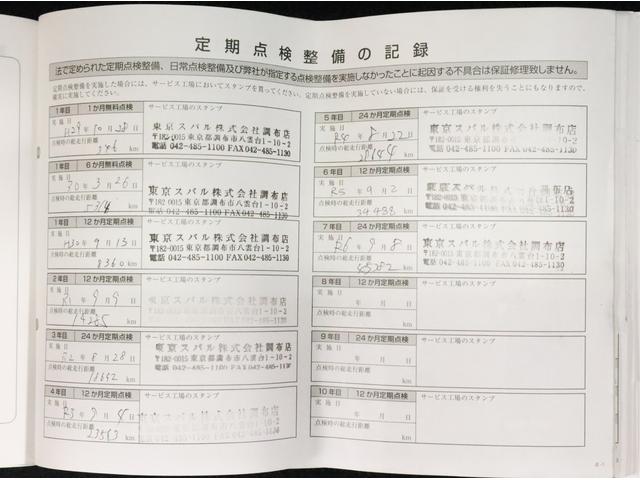 定期点検整備の記録
法で定められた定期点検整備、日常点検整備及び弊社が指定する点検整備を実施しなかったことに起因する不具合は保証修理致しません。
定期点検整備を実施した場合には、サービス工場においてスタンプを貰ってください。定期点検整備を実施していない場合には、保証を受ける権利を失うこともなりますので、
確実に実施してください。
1年目 1か月無料点検 サービス工場のスタンプ
実施日 H29年10月28日
点検時の総走行距離 km
東京スバル株式会社調布店
〒182-0015東京都調布市八雲台1-10-2
電話042-485-1100 FAX042-485-1130
1年目 6か月無料点検 サービス工場のスタンプ
実施日 30年3月26日
点検時の総走行距離 km
東京スバル株式会社調布店
〒182-0015東京都調布市八雲台1-10-2
電話042-485-1100 FAX042-485-1130
1年目 12か月定期点検 サービス工場のスタンプ
実施日 H30年9月13日
点検時の総走行距離 8360km
東京スバル株式会社調布店
〒182-0015東京都調布市八雲台1-10-2
電話042-485-1100 FAX042-485-1130
2年目 12か月定期点検 サービス工場のスタンプ
実施日 R1年9月9日
点検時の総走行距離 14285km
東京スバル株式会社調布店
〒182-0015東京都調布市八雲台1-10-2
電話042-485-1100 FAX042-485-1130
3年目 24か月定期点検 サービス工場のスタンプ
実施日 R2年8月28日
点検時の総走行距離 18642km
東京スバル株式会社調布店
〒182-0015東京都調布市八雲台1-10-2
電話042-485-1100 FAX042-485-1130
4年目 12か月定期点検 サービス工場のスタンプ
実施日 R3年9月4日
点検時の総走行距離 23583km
東京スバル株式会社調布店
〒182-0015東京都調布市八雲台1-10-2
電話042-485-1100 FAX042-485-1130
5年目 24か月定期点検 サービス工場のスタンプ
実施日 R4年8月22日
点検時の総走行距離 km
東京スバル株式会社調布店
〒182-0015東京都調布市八雲台1-10-2
電話042-485-1100 FAX042-485-1130
6年目 12か月定期点検 サービス工場のスタンプ
実施日 R5年9月2日
点検時の総走行距離 34438km
東京スバル株式会社調布店
〒182-0015東京都調布市八雲台1-10-2
電話042-485-1100 FAX042-485-1130
7年目 24か月定期点検 サービス工場のスタンプ
実施日 R6年9月8日
点検時の総走行距離 45282km
東京スバル株式会社調布店
〒182-0015東京都調布市八雲台1-10-2
電話042-485-1100 FAX042-485-1130
8年目 12か月定期点検 サービス工場のスタンプ
実施日 年 月 日
点検時の総走行距離 km
9年目 24か月定期点検 サービス工場のスタンプ
実施日 年 月 日
点検時の総走行距離 km
10年目 12か月定期点検 サービス工場のスタンプ
実施日 年 月 日
点検時の総走行距離 km